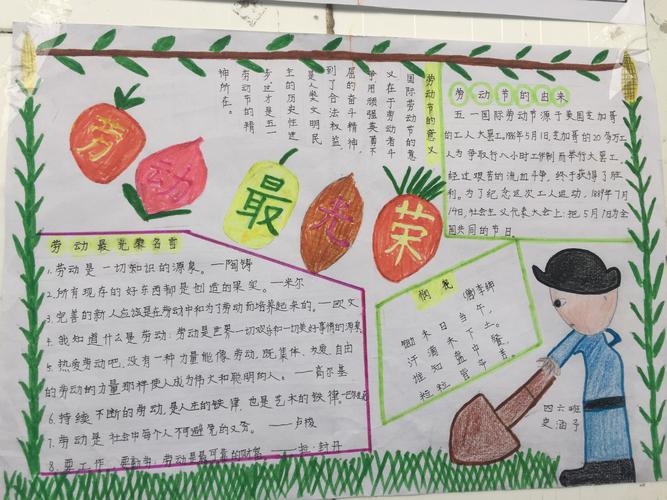 劳动最光荣
劳动节的意义
国际劳动节的意
义在于劳动者斗
争用顽强英勇不
屈的奋斗精神，
到了合法权益，
是人类文明民
主的历史性进
步，这才是五一
劳动节的精
神所在。
劳动节的由来
五一国际劳动节源于美国芝加哥
的工人大罢工。1886年5月1日芝加哥的20多万工
人为争取行八小时工作制而举行大罢工，
经过艰苦的流血斗争，终于获得了胜
利。为了纪念这次工人运动，1889年7月
14日，社会主义代表人会上：把5月1日为全
国共同的节日
劳动最光荣名言
1.劳动是一切知识的源泉。——陶铸
2.所有现存的好东西都是创造的果实。——米尔
3.完善的新人应该是在劳动中和为了劳动而培养起来的。——欧文
4.我知道什么是劳动：劳动是世界一切欢乐和一切美好事情的源泉
5.热爱劳动吧，没有一种力量能像劳动，既集体、友爱、自由
的劳动的力量那样使人成为伟大和聪明的人。——高尔基
6.持续不断的劳动，是人生的铁律，也是艺术的铁律。
7.劳动是社会中每个人不可避免的义务。——卢梭
8.要工作，要勤劳：劳动是最可靠的财富。
悯农 唐李绅
锄禾日当午，
汗滴禾下土。
谁知盘中餐，
粒粒皆辛苦。
四六班
史涵予